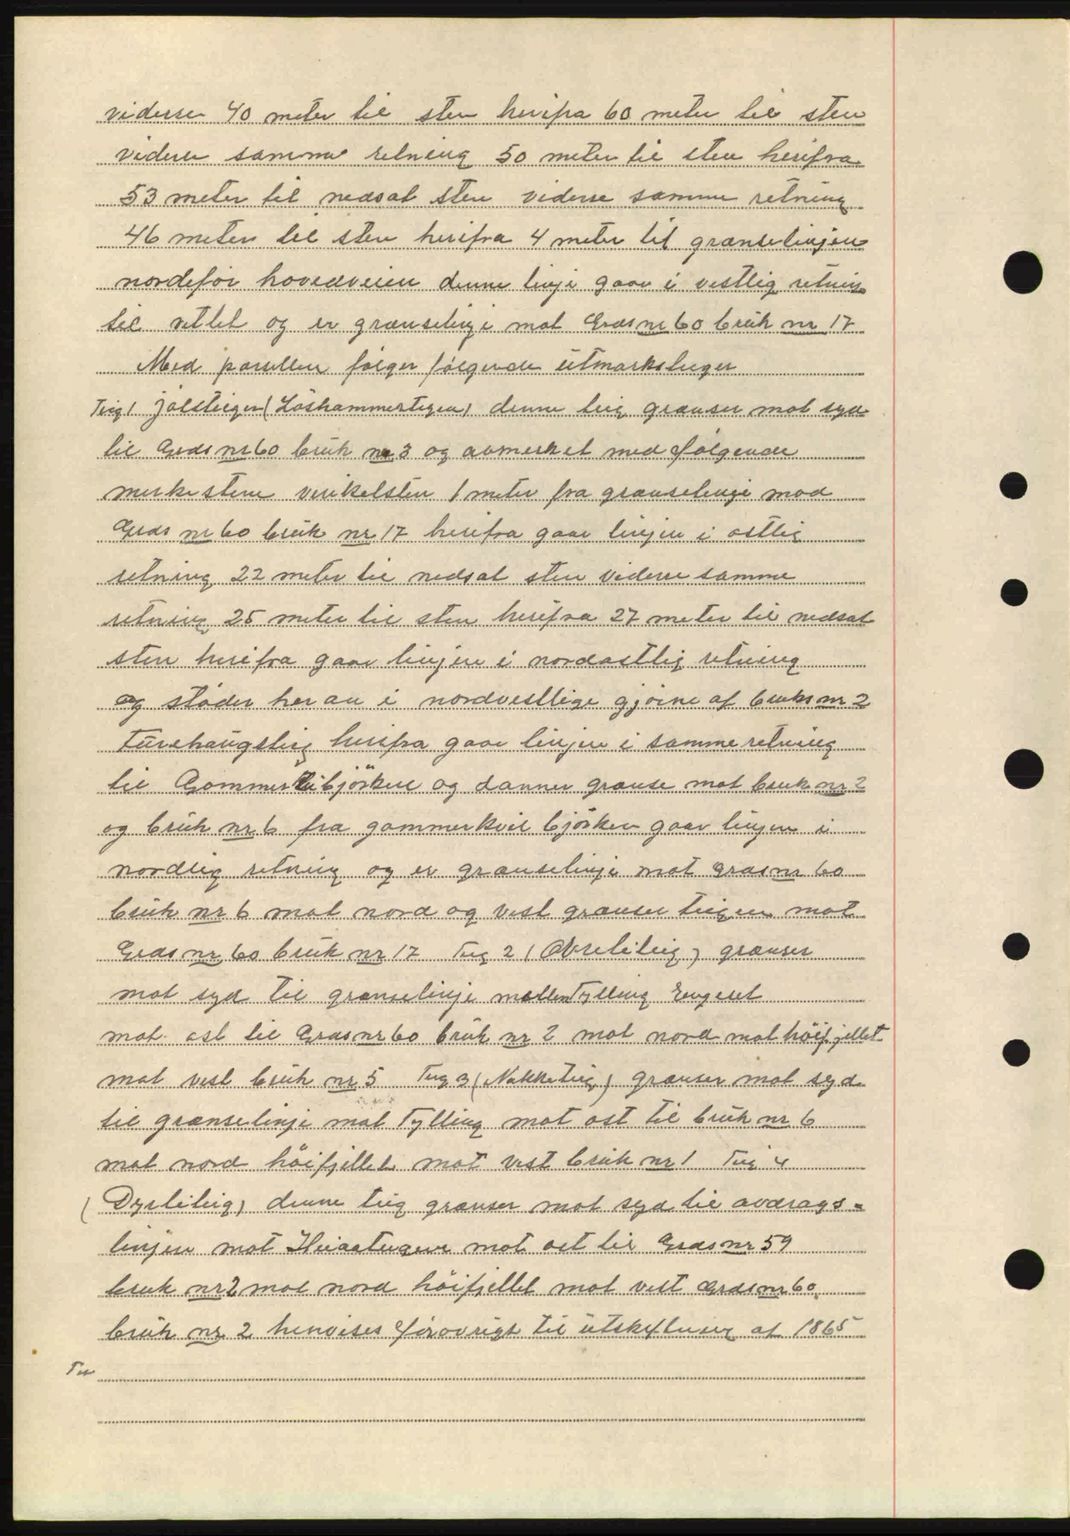 viderse 40 meter til sten herifra 60 meter til sten
videre samme retning 50 meter til sten herifra
53 meter til nedsat sten viderse samme retning
46 meter til sten herifra 4 meter til grænselinjen
nordefor hovedveien denne linje gaar i vestlig retning
til vetlet og er grænselinje mot Grds nr 60 bruk nr 17
Med parsellen følger følgende utmarksteiger
Teig 1 (Løshammertegen) denne teig grænser mot syd
til Grds nr 60 bruk nr 3 og avmerket med følgende
merkestene vinkelsten 1 meter fra grænselinje mod
Grds nr 60 bruk nr 17 herifra gaar linjen i østlig
retning 22 meter til nedsat sten videre samme
retning 25 meter til sten herifra 27 meter til nedsat
sten herifra gaar linjen i nordøstlig retning
og støder her an i nordvestlige gjørne af bruks nr 2
Turehaugsteig herifra gaar linjen i samme retning
til bjørken og danner grænse mot bruk nr 2
og bruk nr 6 fra gammerkvil bjørken gaar linjen i
nordlig retning og er grænselinje mot Grds nr 60
bruk nr 6 mot nord og vest grænser teigen mot
Grds nr 60 bruk nr 17 Teig 2 (Øvreliteig) grænser
mot syd til grænselinje mellem Tylling Engeset
mot øst til Grds nr 60 bruk nr 2 mot nord mot høifjellet
mot vest bruk nr 5 Teig 3 (Nakketeig) grænser mot syd
til grænselinje mot Tylling mot øst til bruk nr 6
mot nord høifjellet mot vest bruk nr 1 Teig 4
(Dyrliteig) denne teig grænser mot syd til avdrags-
linjen mot mot øst til Grds nr 59
bruk nr 2 mot nord høifjellet mot vest Grds nr 60
bruk nr 2 henvises forøvrigt til utskiftning af 1865